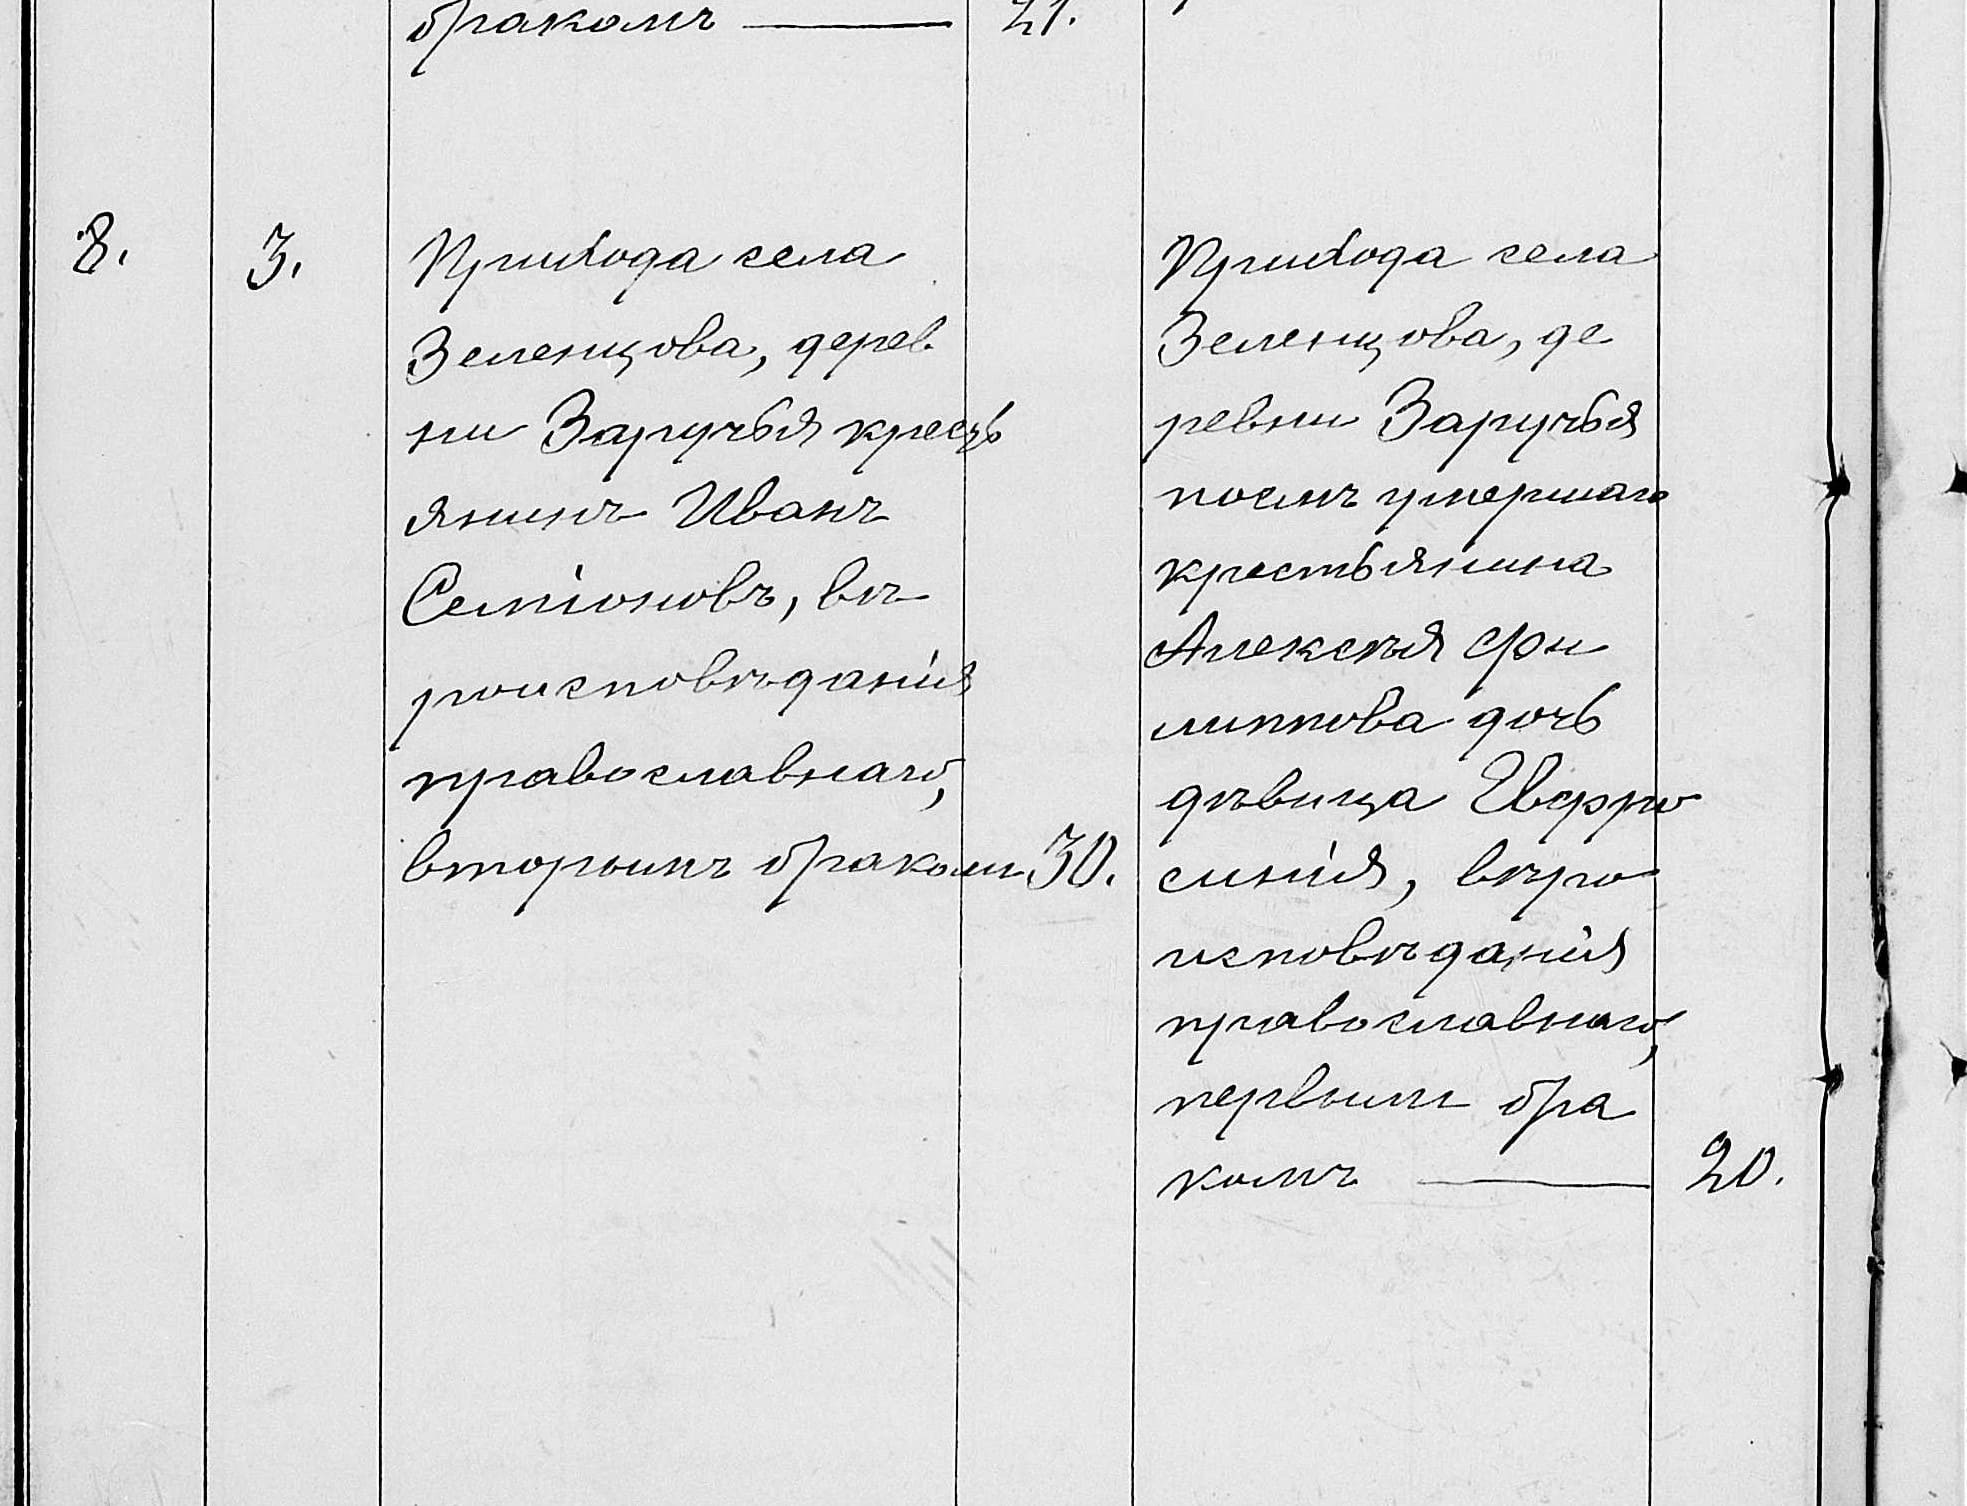 бракомъ — 21.
8. 3.
Прихода села
Зеленцова, дерев
ни Заручья кресть
янинъ Иванъ
Симіоновъ, вѣ
роисповѣданія
православнаго,
вторымъ бракомъ 30.
Прихода села
Зеленцова, де
ревни Заручья
послѣ умершаго
крестьянина
Алексѣя Фи
липпова дочь
дѣвица Евфро
синія, вѣро
исповѣданія
православнаго,
первымъ бра
комъ — 20.